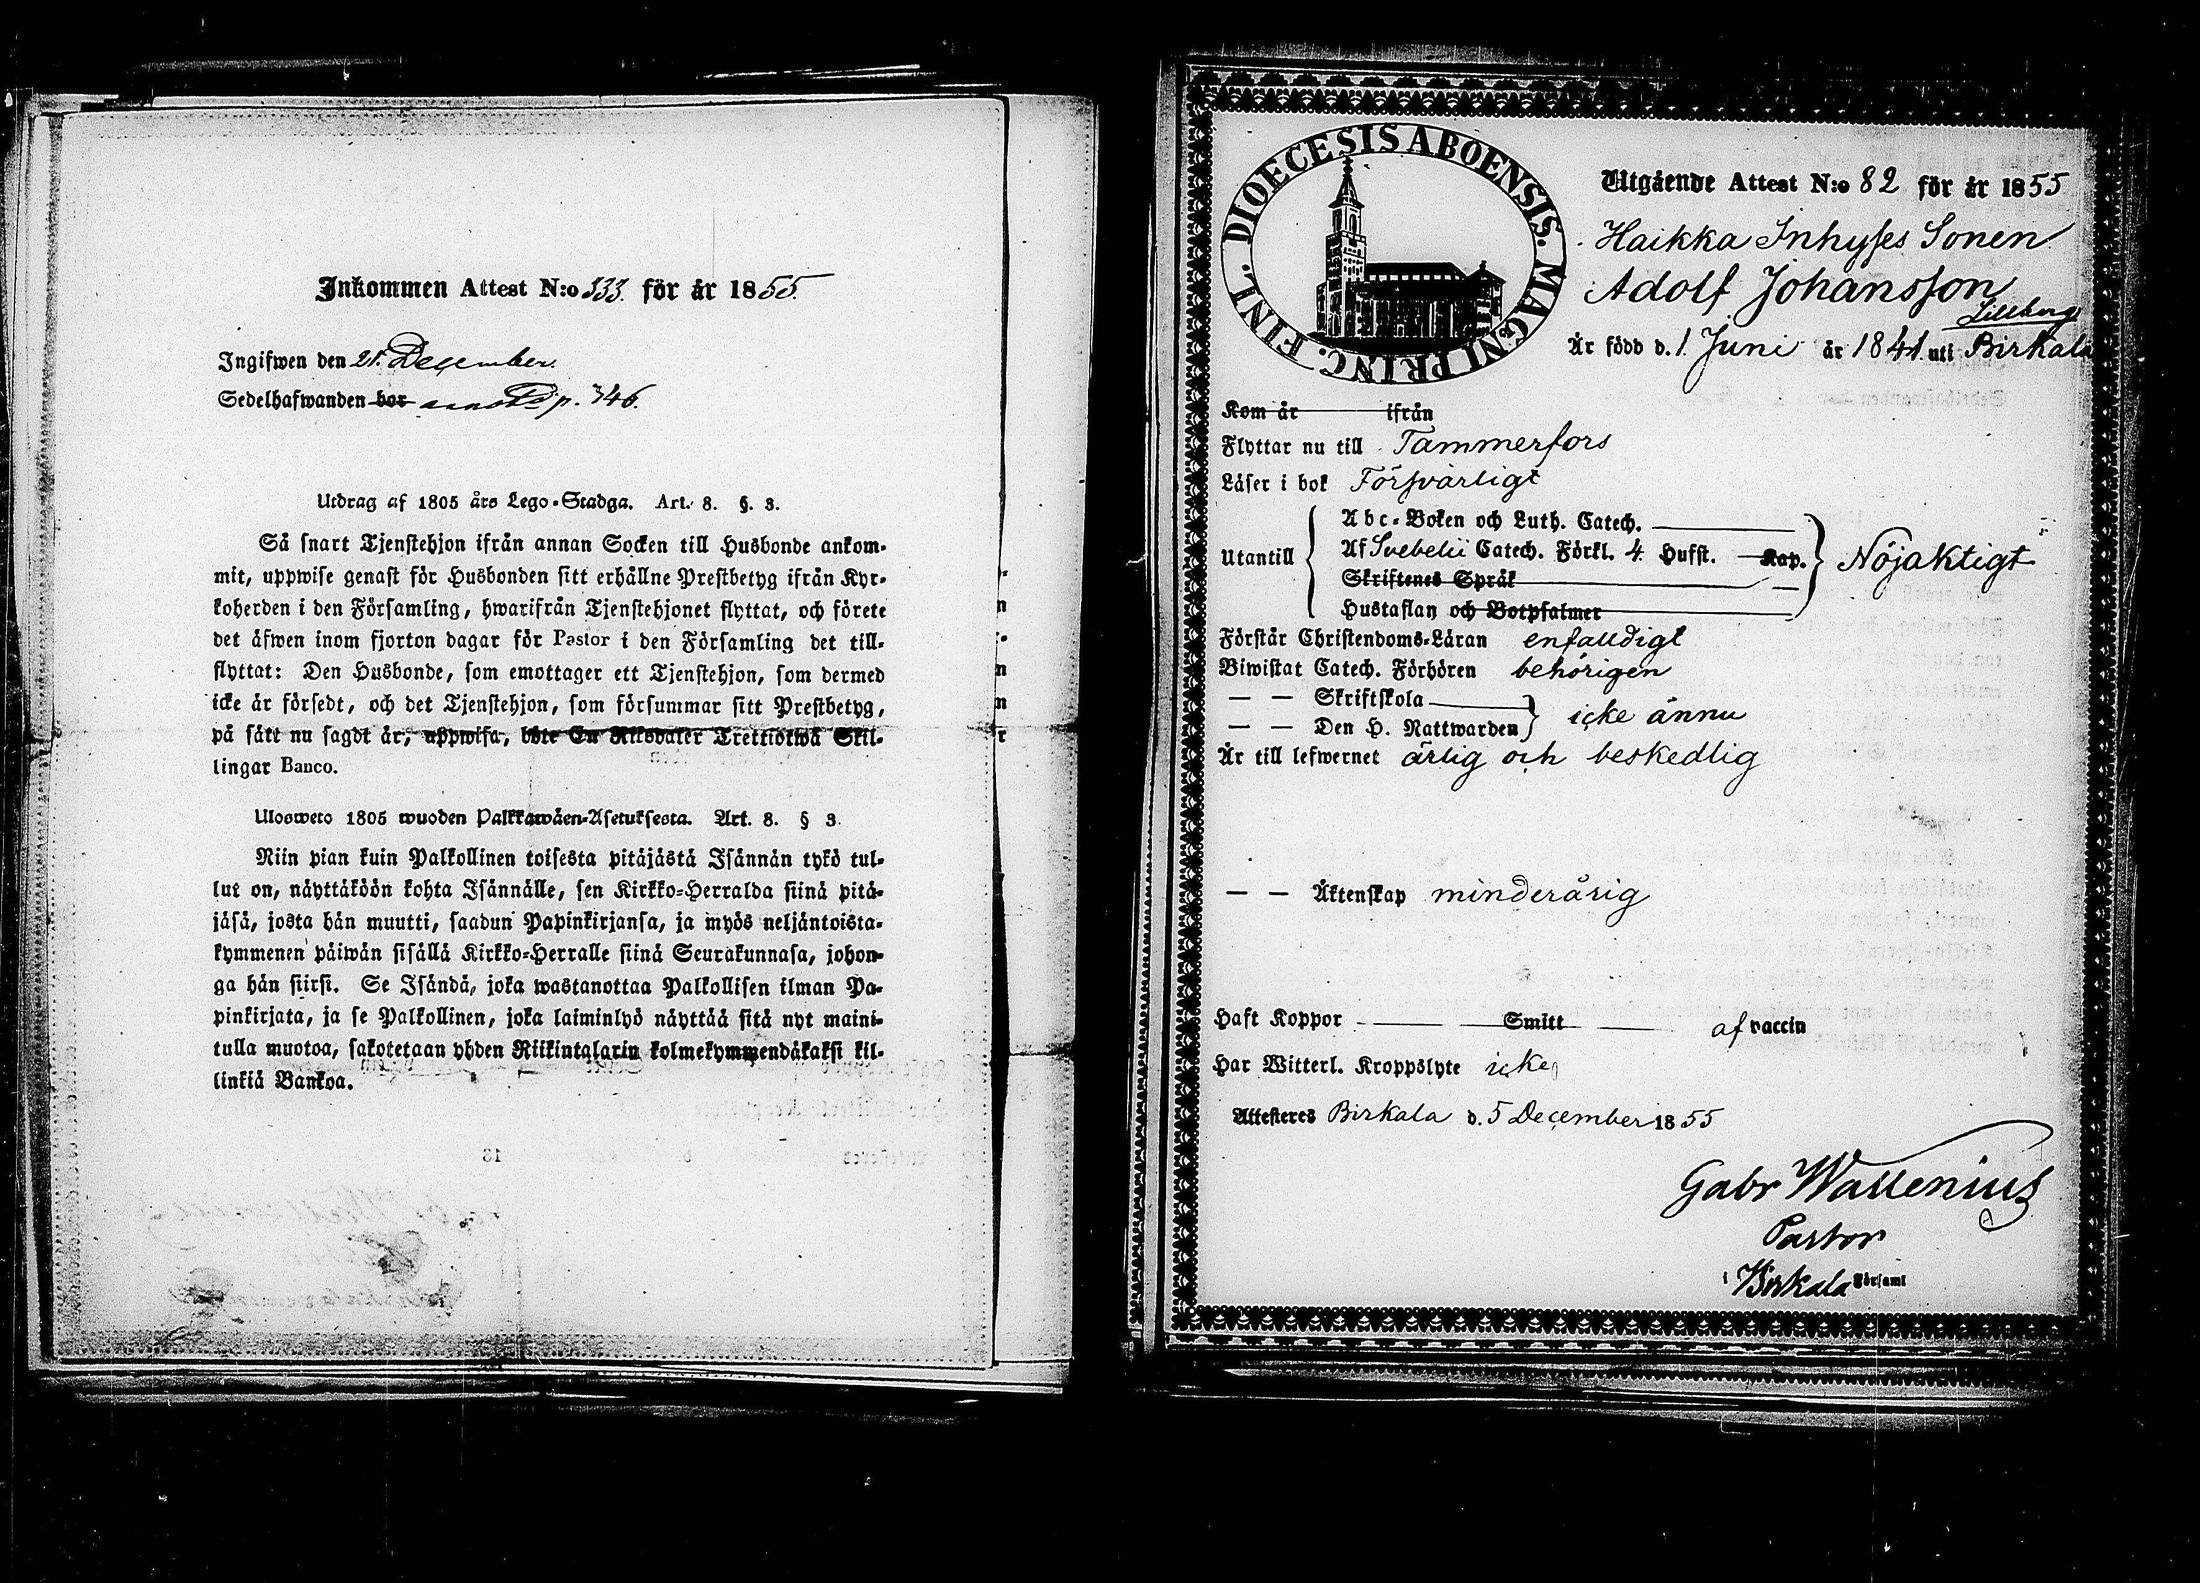 Inkommen Attest N:o 333. för år 1855.
Ingifwen den 21. December.
Sedelhafwanden bor p. 346.
Utdrag af 1805 års Lego-Stadga. Art. 8. §. 3.
Så snart Tjenstehjon ifrån annan Socken till Husbonde ankom-
mit, uppwise genast för Husbonden sitt erhållne Prestbetyg ifrån Kyr-
koherden i den Församling, hwarifrån Tjenstehjonet flyttat, och förete
det äfwen inom fjorton dagar för Pastor i den Församling det till-
flyttat: Den Husbonde, som emottager ett Tjenstehjon, som dermed
icke är försedt, och det Tjenstehjon, som försummar sitt Prestbetyg,
på sätt nu sagdt är, uppwisa, böte En Riksdaler Trettiotwå Skil-
lingar Banco.
Ulosweto 1805 wuoden Palkkawäen-Asetuksesta. Art. 8. § 3.
Niin pian kuin Palkollinen toisesta pitäjästä Isännän tykö tul-
lut on, näyttäköön kohta Isännälle, sen Kirkko-Herralda siinä pitä-
jäsä, josta hän muutti, saadun Papinkirjansa, ja myös neljäntoista-
kymmenen päiwän sisällä Kirkko-Herralle siinä Seurakunnasa, johon-
ga hän siirsi. Se Isändä, joka wastanottaa Palkollisen ilman Pa-
pinkirjata, ja se Palkollinen, joka laiminlyö näyttää sitä nyt maini-
tulla muotoa, sakotetaan yhden Riikintalarin kolmekymmendäkaksi kil-
linkiä Bankoa.
DIOECESIS ABOENSIS. MAGNI PRINC. FINL.
Utgående Attest N:o 82 för år 1855
Haikka Inhyses Sonen
Adolf Johansson
Lillberg
Är född d. 1 Juni år 1841 uti Birkala
Kom år ifrån
Flyttar nu till Tammerfors
Läser i bok Försvarligt
Utantill
Abc-Boken och Luth. Catech.
Af Svebelii Catech. Förkl. 4 Hufst. Kap.
Skriftenes Språk
Hustaflan och Botpsalmer
Nöjaktigt
Förstår Christendoms-Läran enfaldigt
Biwistat Catech. Förhören behörigen
— — Skriftskola
— — Den H. Nattwarden
icke ännu
Är till lefwernet ärlig och beskedlig
— — Äktenskap minderårig
Haft Koppor Smitt af vaccin
Har Witterl. Kroppslyte icke
Attesteres Birkala d. 5 December 1855
Gabr Wallenius
Pastor
i Birkala Församl